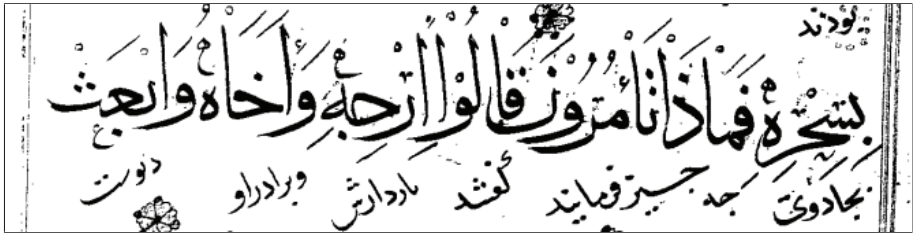 بودند
بِسِحْرِهِ فَمَاذَا تَأْمُرُونَ قَالُوْا أَرْجِهْ وَأَخَاهُ وَابْعَثْ
بجادوئ جه جیز فرمایند کفتند بازدارش وبرادر او